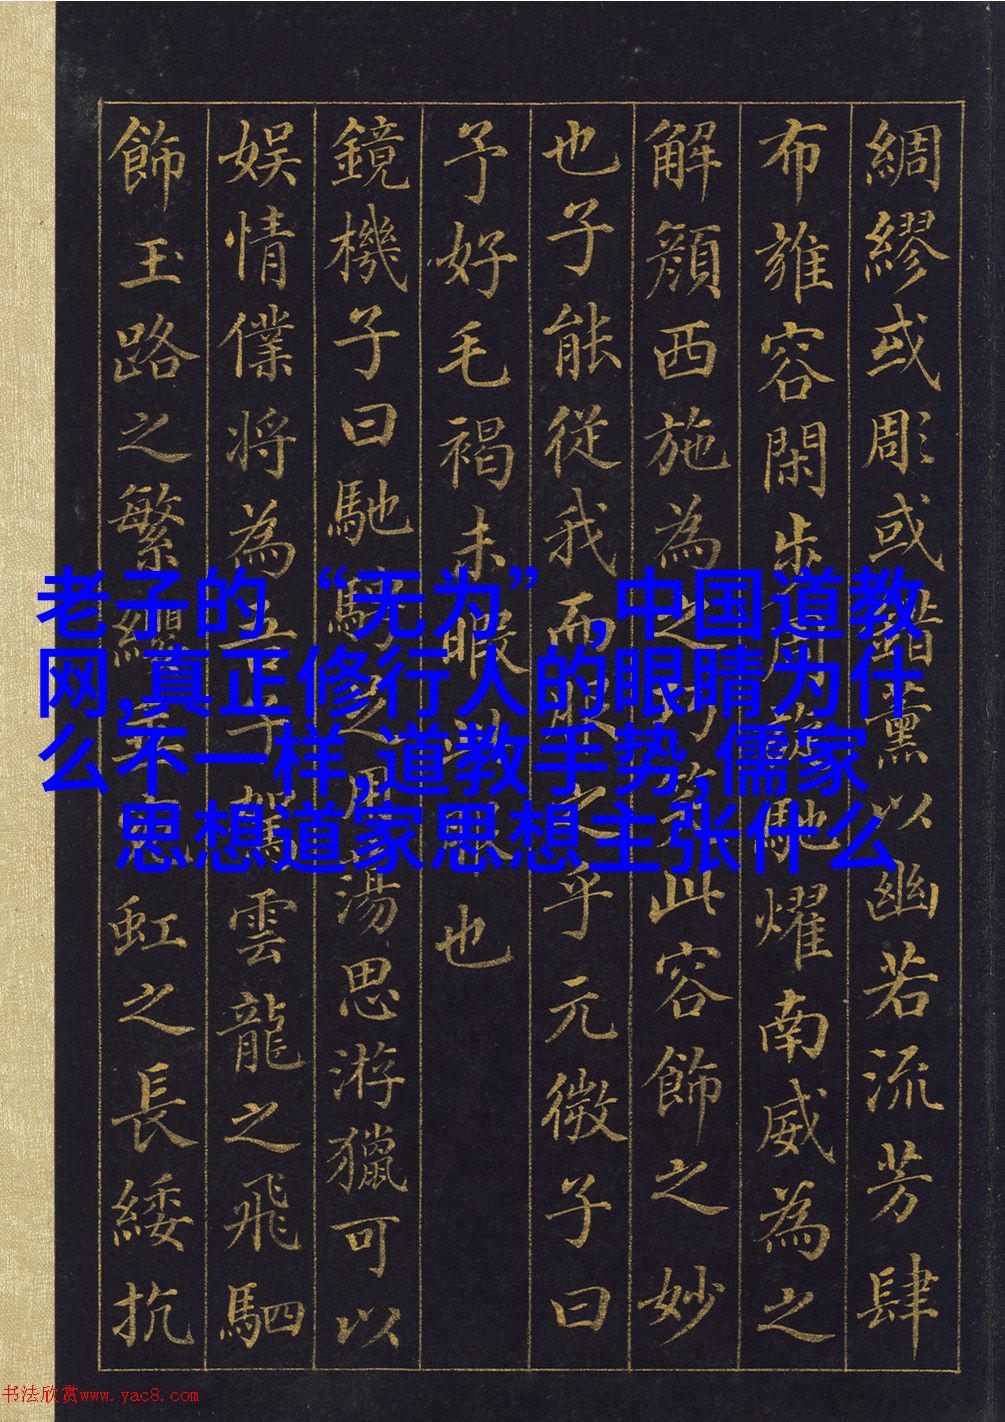 綢繆或彫或錯薰以幽若流芳肆
布雍容閑步周旋馳耀南威為之
解顏西施為之巧笑此容飾之妙
也子能從我而服之乎元微子曰
予好毛褐未暇此服也
鏡機子曰馳騁足用蕩思游獵可以
娛情僕將為吾子駕雲龍之飛駟
飾玉路之繁纓垂宛虹之長綏抗
老子的“无为”,中国道教
网,真正修行人的眼睛为什
么不一样,道教手势,儒家
思想道家思想主张什么
书法欣赏www.yac8.com